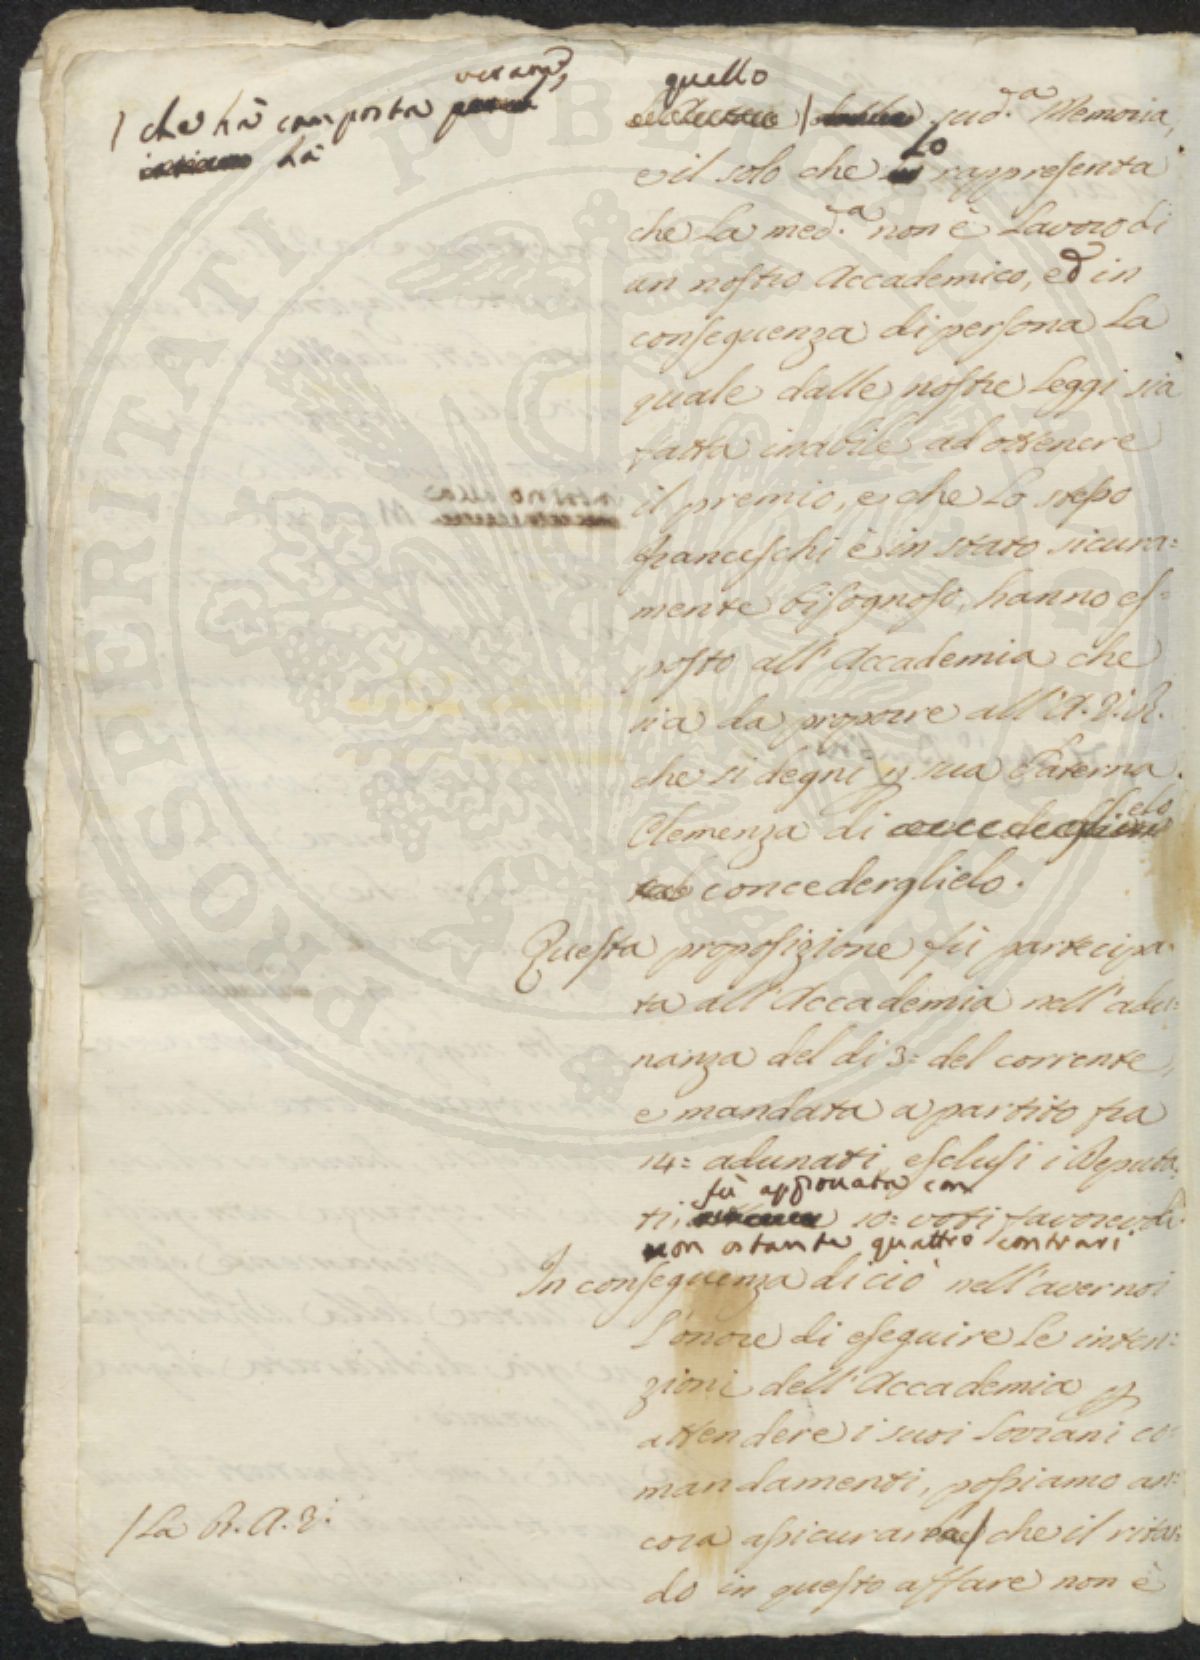 / che hà composta veram.e
hà
quello
sud.a Memoria,
e il solo che lo rappresenta
che la med.a non è Lavoro di
un nostro Accademico, ed in
conseguenza di persona la
quale dalle nostre Leggi sia
fatta inabile ad ottenere
il premio, e che Lo stesso
franceschi è in stato sicura=
mente bisognoso, hanno es=
posto all'Accademia che
sia da proporre all'A.V.R.
che si degni p sua Paterna
Clemenza di
concederglielo.
Questa proposizione fù partecipa=
ta all'Accademia nell'adu=
nanza del di 3= del corrente,
e mandata a partito fra
14= adunati, esclusi i Deputa=
ti, fù approvata con 10= voti favorevoli
non ostante quattro contrari
In conseguenza di ciò nell'aver noi
l'onore di eseguire le inten=
zioni dell'Accademia p
attendere i suoi Sovrani co=
mandamenti, possiamo an=
cora assicurare / che il ritar=
/ La R.A.V.
do in questo affare non è
PROSPERITATI PUBLICAE AUGENDAE